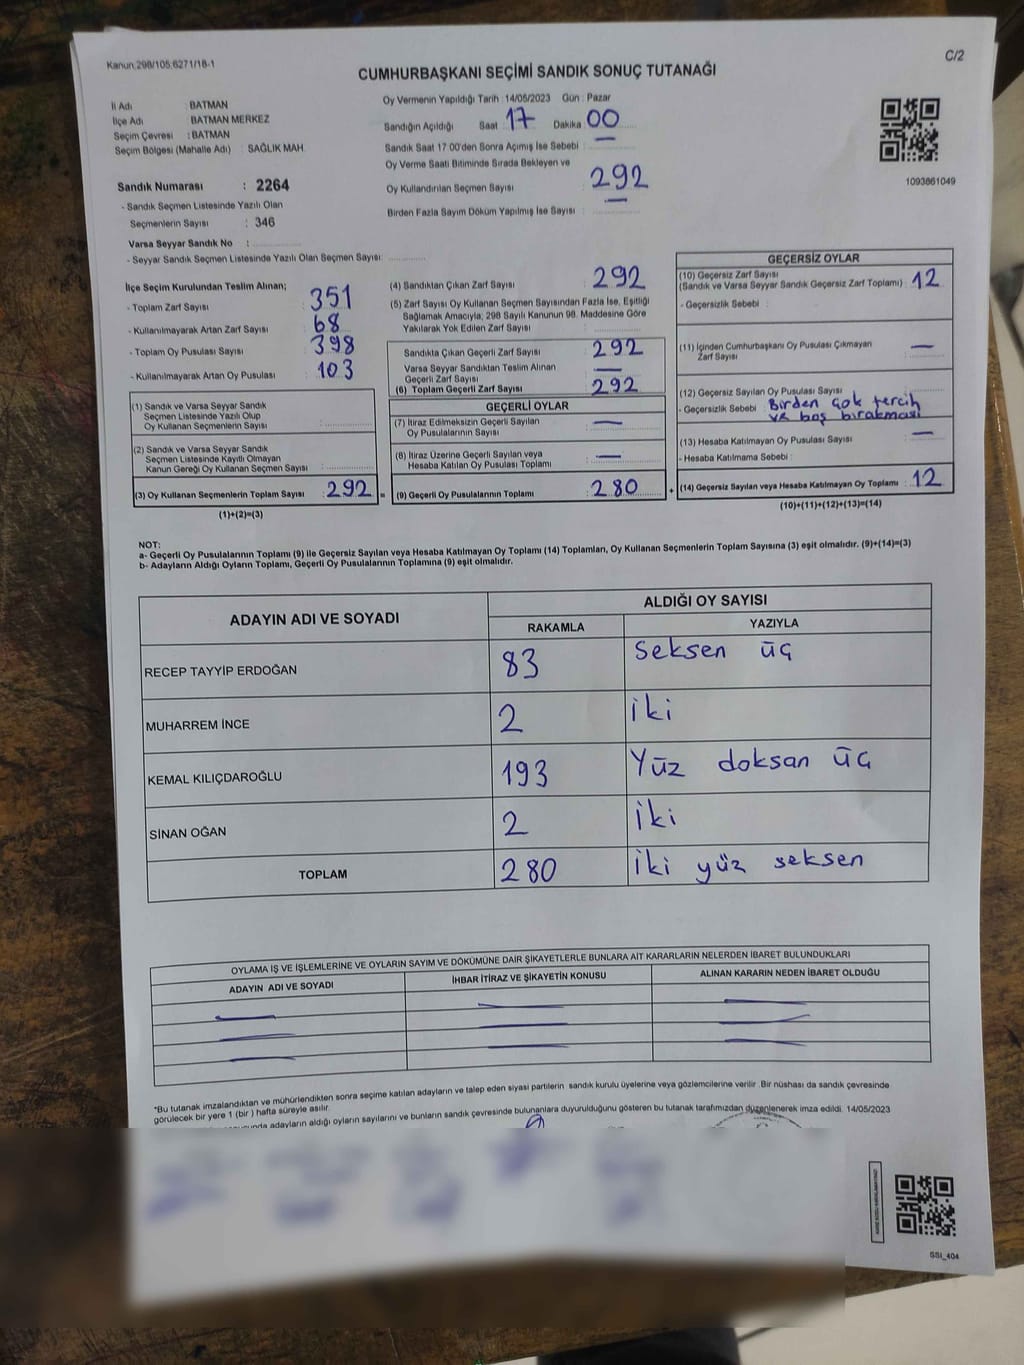 Kanun:298/105;6271/18-1
C/2
CUMHURBAŞKANI SEÇİMİ SANDIK SONUÇ TUTANAĞI
İl Adı : BATMAN
İlçe Adı : BATMAN MERKEZ
Seçim Çevresi : BATMAN
Seçim Bölgesi (Mahalle Adı) : SAĞLIK MAH.
Sandık Numarası : 2264
- Sandık Seçmen Listesinde Yazılı Olan
Seçmenlerin Sayısı : 346
Varsa Seyyar Sandık No :
- Seyyar Sandık Seçmen Listesinde Yazılı Olan Seçmen Sayısı:
Oy Vermenin Yapıldığı Tarih : 14/05/2023 Gün : Pazar
Sandığın Açıldığı Saat : 17 Dakika : 00
Sandık Saat 17:00'den Sonra Açımış İse Sebebi : —
Oy Verme Saati Bitiminde Sırada Bekleyen ve
Oy Kullandırılan Seçmen Sayısı : 292
Birden Fazla Sayım Döküm Yapılmış İse Sayısı : —
1093861049
İlçe Seçim Kurulundan Teslim Alınan;
- Toplam Zarf Sayısı : 351
- Kullanılmayarak Artan Zarf Sayısı : 68
- Toplam Oy Pusulası Sayısı : 398
- Kullanılmayarak Artan Oy Pusulası : 103
(1) Sandık ve Varsa Seyyar Sandık
Seçmen Listesinde Yazılı Olup
Oy Kullanan Seçmenlerin Sayısı :
(2) Sandık ve Varsa Seyyar Sandık
Seçmen Listesinde Kayıtlı Olmayan
Kanun Gereği Oy Kullanan Seçmen Sayısı :
(3) Oy Kullanan Seçmenlerin Toplam Sayısı : 292 =
(1)+(2)=(3)
(4) Sandıktan Çıkan Zarf Sayısı : 292
(5) Zarf Sayısı Oy Kullanan Seçmen Sayısından Fazla İse, Eşitliği
Sağlamak Amacıyla; 298 Sayılı Kanunun 98. Maddesine Göre
Yakılarak Yok Edilen Zarf Sayısı :
Sandıkta Çıkan Geçerli Zarf Sayısı : 292
Varsa Seyyar Sandıktan Teslim Alınan
Geçerli Zarf Sayısı : —
(6) Toplam Geçerli Zarf Sayısı : 292
GEÇERLİ OYLAR
(7) İtiraz Edilmeksizin Geçerli Sayılan
Oy Pusulalarının Sayısı : —
(8) İtiraz Üzerine Geçerli Sayılan veya
Hesaba Katılan Oy Pusulası Toplamı : —
(9) Geçerli Oy Pusulalarının Toplamı : 280 +
GEÇERSİZ OYLAR
(10) Geçersiz Zarf Sayısı
(Sandık ve Varsa Seyyar Sandık Geçersiz Zarf Toplamı) : 12
- Geçersizlik Sebebi :
(11) İçinden Cumhurbaşkanı Oy Pusulası Çıkmayan
Zarf Sayısı : —
(12) Geçersiz Sayılan Oy Pusulası Sayısı :
- Geçersizlik Sebebi : Birden çok tercih
ve boş bırakması
(13) Hesaba Katılmayan Oy Pusulası Sayısı : —
- Hesaba Katılmama Sebebi :
(14) Geçersiz Sayılan veya Hesaba Katılmayan Oy Toplamı : 12
(10)+(11)+(12)+(13)=(14)
NOT:
a- Geçerli Oy Pusulalarının Toplamı (9) ile Geçersiz Sayılan veya Hesaba Katılmayan Oy Toplamı (14) Toplamları, Oy Kullanan Seçmenlerin Toplam Sayısına (3) eşit olmalıdır. (9)+(14)=(3)
b- Adayların Aldığı Oyların Toplamı, Geçerli Oy Pusulalarının Toplamına (9) eşit olmalıdır.
ADAYIN ADI VE SOYADI
ALDIĞI OY SAYISI
RAKAMLA YAZIYLA
RECEP TAYYİP ERDOĞAN 83 Seksen üç
MUHARREM İNCE 2 iki
KEMAL KILIÇDAROĞLU 193 Yüz doksan üç
SİNAN OĞAN 2 İki
TOPLAM 280 İki yüz seksen
OYLAMA İŞ VE İŞLEMLERİNE VE OYLARIN SAYIM VE DÖKÜMÜNE DAİR ŞİKAYETLERLE BUNLARA AİT KARARLARIN NELERDEN İBARET BULUNDUKLARI
ADAYIN ADI VE SOYADI İHBAR İTİRAZ VE ŞİKAYETİN KONUSU ALINAN KARARIN NEDEN İBARET OLDUĞU
*Bu tutanak imzalandıktan ve mühürlendikten sonra seçime katılan adayların ve talep eden siyasi partilerin sandık kurulu üyelerine veya gözlemcilerine verilir. Bir nüshası da sandık çevresinde
görülecek bir yere 1 (bir ) hafta süreyle asılır.
adayların aldığı oyların sayılarını ve bunların sandık çevresinde bulunanlara duyurulduğunu gösteren bu tutanak tarafımızdan düzenlenerek imza edildi. 14/05/2023
SSI_404